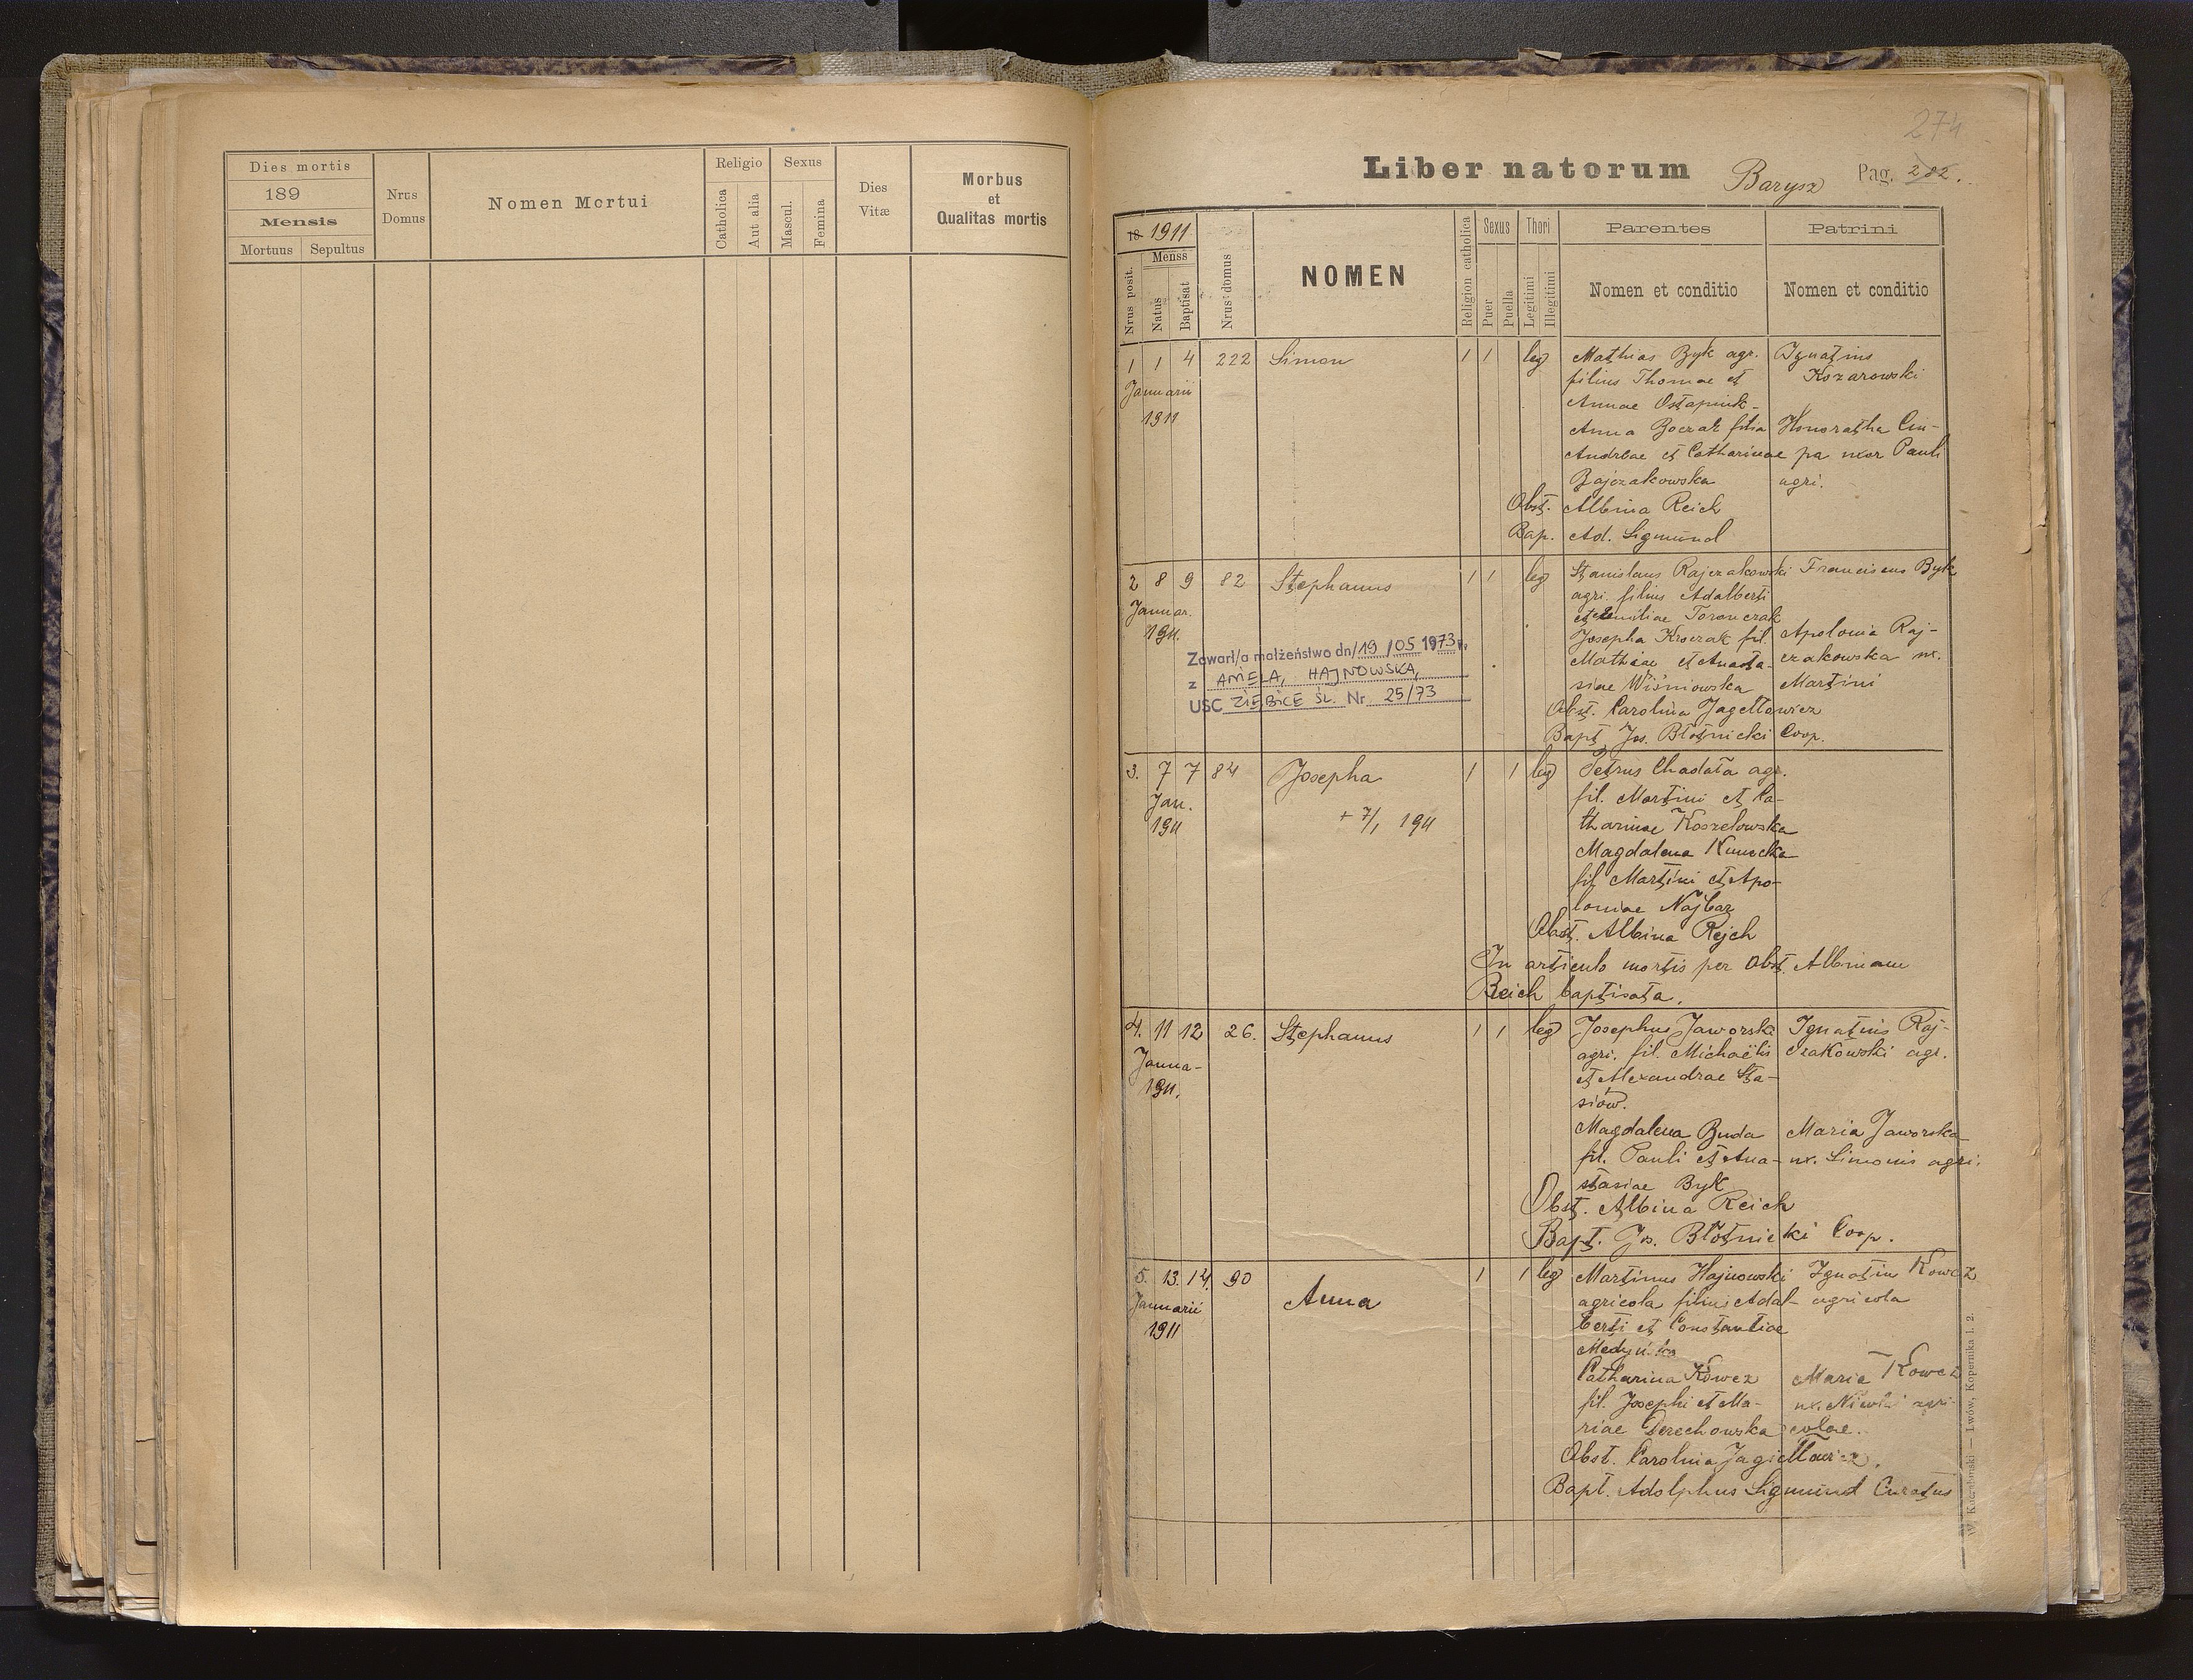 Dies mortis
189
Mensis
Mortuus Sepultus
Nrus Domus
Nomen Mortui
Religio
Catholica
Aut alia
Sexus
Mascul.
Femina
Dies Vitæ
Morbus
et
Qualitas mortis
274
Liber natorum Barysz Pag. 282.
18 1911
Menss
Nrus posit.
Natus
Baptisat
Nrus domus
NOMEN
Religion catholica
Sexus
Puer
Puella
Thori
Legitimi
Illegitimi
Parentes
Nomen et conditio
Patrini
Nomen et conditio
1 1 4 222 Simon 1 1 leg Mathias Byk agr. Ignatius
Januarii filius Thomae et Kozarowski
1911 Annae Ostapiuk-
Anna Boczak filia Honoratha Ciu-
Andreae et Catharinae pa uxor Pauli
Bajczakowska agri.
Obst. Albina Reich
Bap. Ad. Sigmund
2 8 9 82 Stephanus 1 1 leg Stanislaus Rajczakowski Franciscus Byk
Januar. agri. filius Adalberti
1911. et Emiliae Toronczak
Josepha Kroczak fil. Apolonia Raj-
Mathiae et Anasta- czakowska ux.
siae Wiśniowska Martini
Obst. Carolina Jagełłowicz
Bapt Jos. Błotnicki Coop.
Zawarł/a małżeństwo dn/19/05 1973r.
z ANIELA, HAJNOWSKA,
USC ZIĘBICE ŚL. Nr 25/73
3. 7 7 84 Josepha 1 1 leg Petrus Chadała agr.
Jan. fil. Martini et Ca-
1911 + 7/1 1911 tharinae Koszelowska
Magdalena Kunecka
fil Martini et Apo-
loniae Najbar
Obst. Albina Rejch
In articulo mortis per Obst. Albinam
Reich baptisata.
4. 11 12 26. Stephanus 1 1 leg Josephus Jaworski Ignatius Raj-
Janua- agri. fil. Michaëlis czakowski agr.
1911. et Alexandrae Sta-
siów.
Magdalena Buda Maria Jaworska
fil. Pauli et Ana- ux. Simonis agri.
stasiae Byk
Obst. Albina Reich
Bapt. Jos. Błotnicki Coop.
5. 13. 14. 90 Anna 1 1 leg Martinus Hajnowski Ignatius Kowcz
Januarii agricola filius Adal- agricola
1911 berti et Constantiae
Medyńska
Catharina Kowcz Maria Kowcz
fil. Josephi et Ma- ux. Nicolai agri-
riae Derechowska colae.
Obst. Carolina Jagiełłowicz.
Bapt. Adolphus Sigmund Curatus
Lwów, Kopernika l. 2.